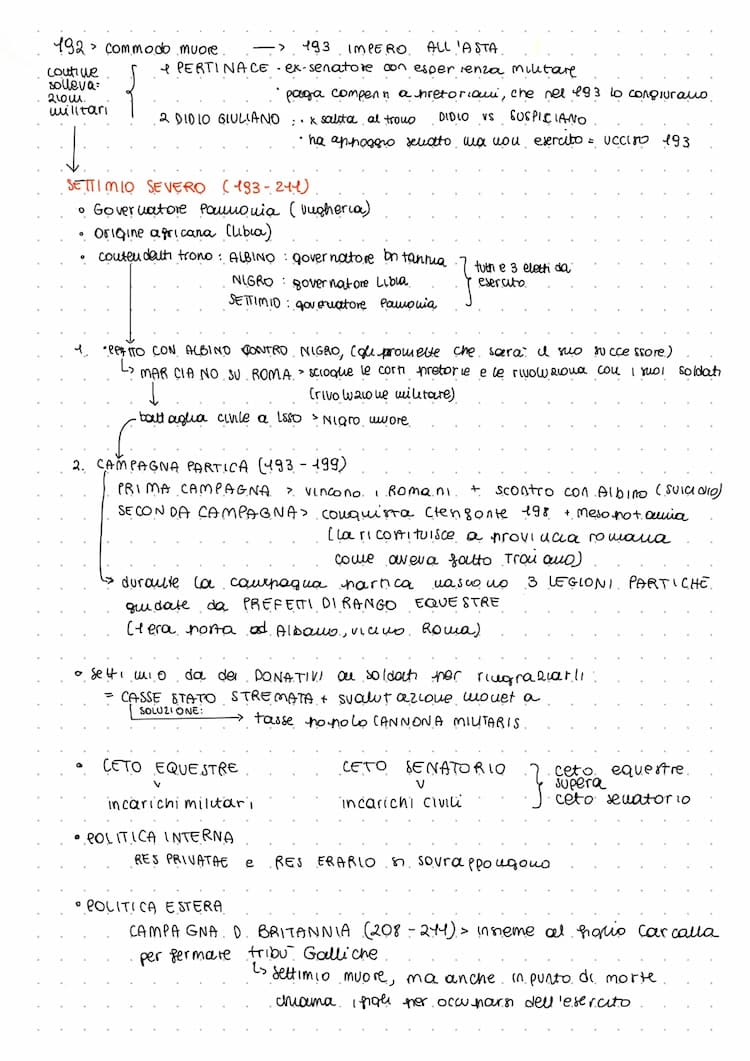 192 > commodo muore → 193 IMPERO ALL'ASTA
continue sollevazioni militari
1 PERTINACE · ex-senatore con esperienza militare
· paga compensi a pretoriani, che nel 193 lo congiurano
2 DIDIO GIULIANO : · x salita al trono DIDIO VS SUSPICIANO
· ha appoggio senato ma non esercito = ucciso 193
SETTIMIO SEVERO (193-211)
• Governatore Pannonia (Ungheria)
• origine africana (Libia)
• contendenti trono : ALBINO : governatore britannia
NIGRO : governatore Libia
SETTIMIO : governatore Pannonia
tutti e 3 eletti da esercito
1. · PATTO CON ALBINO CONTRO NIGRO, (gli promette che sarà il suo successore)
↳ MARCIA NO SU ROMA > scioglie le corti pretorie e le rivoluziona con i suoi soldati
(rivoluzione militare)
battaglia civile a Isso > Nigro muore
2. CAMPAGNA PARTICA (193-199)
PRIMA CAMPAGNA > vincono i Romani + scontro con Albino (suicidio)
SECONDA CAMPAGNA > conquista Ctensonte 198 + mesopotamia
(la ricostituisce a provincia romana
come aveva fatto Traiano)
↳ durante la campagna partica nascono 3 LEGIONI PARTICHE
guidate da PREFETTI DI RANGO EQUESTRE
(1 era posta ad Albano, vicino Roma)
• Settimio da dei DONATIVI ai soldati per ringraziarli
= CASSE STATO STREMATA + svalutazione moneta
SOLUZIONE: → tasse popolo (ANNONA MILITARIS
• CETO EQUESTRE CETO SENATORIO
incarichi militari incarichi civili
ceto equestre supera ceto senatorio
• POLITICA INTERNA
RES PRIVATAE e RES ERARIO si sovrappongono
• POLITICA ESTERA
CAMPAGNA D. BRITANNIA (208-211) > insieme al figlio Carcalla
per fermare tribù Galliche
↳ Settimio muore, ma anche in punto di morte
chiama i figli per occuparsi dell'esercito